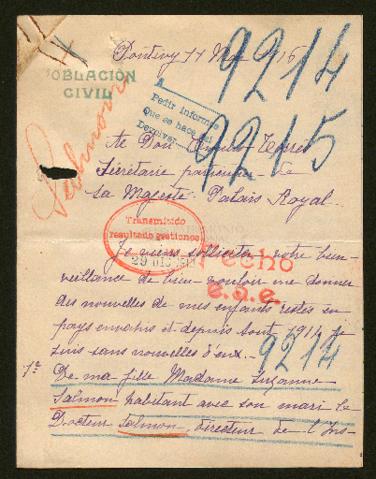 Pontivy 11 Mai 1916
9214
9215
POBLACIÓN
CIVIL
Salmon
Pedir informe
Que se hace así
Devolver
Secrétaire particulier de
Sa Majesté Palais Royal.
Transmitido
resultado gestiones
Je viens solliciter votre bien-
veillance de bien vouloir me donner
des nouvelles de mes enfants restés en
pays envahis et depuis Aout 1914 je
suis sans nouvelles d'eux.
9214
1º De ma fille Madame Suzanne
Salmon habitant avec son mari le
Docteur Salmon, directeur de l'Ins-